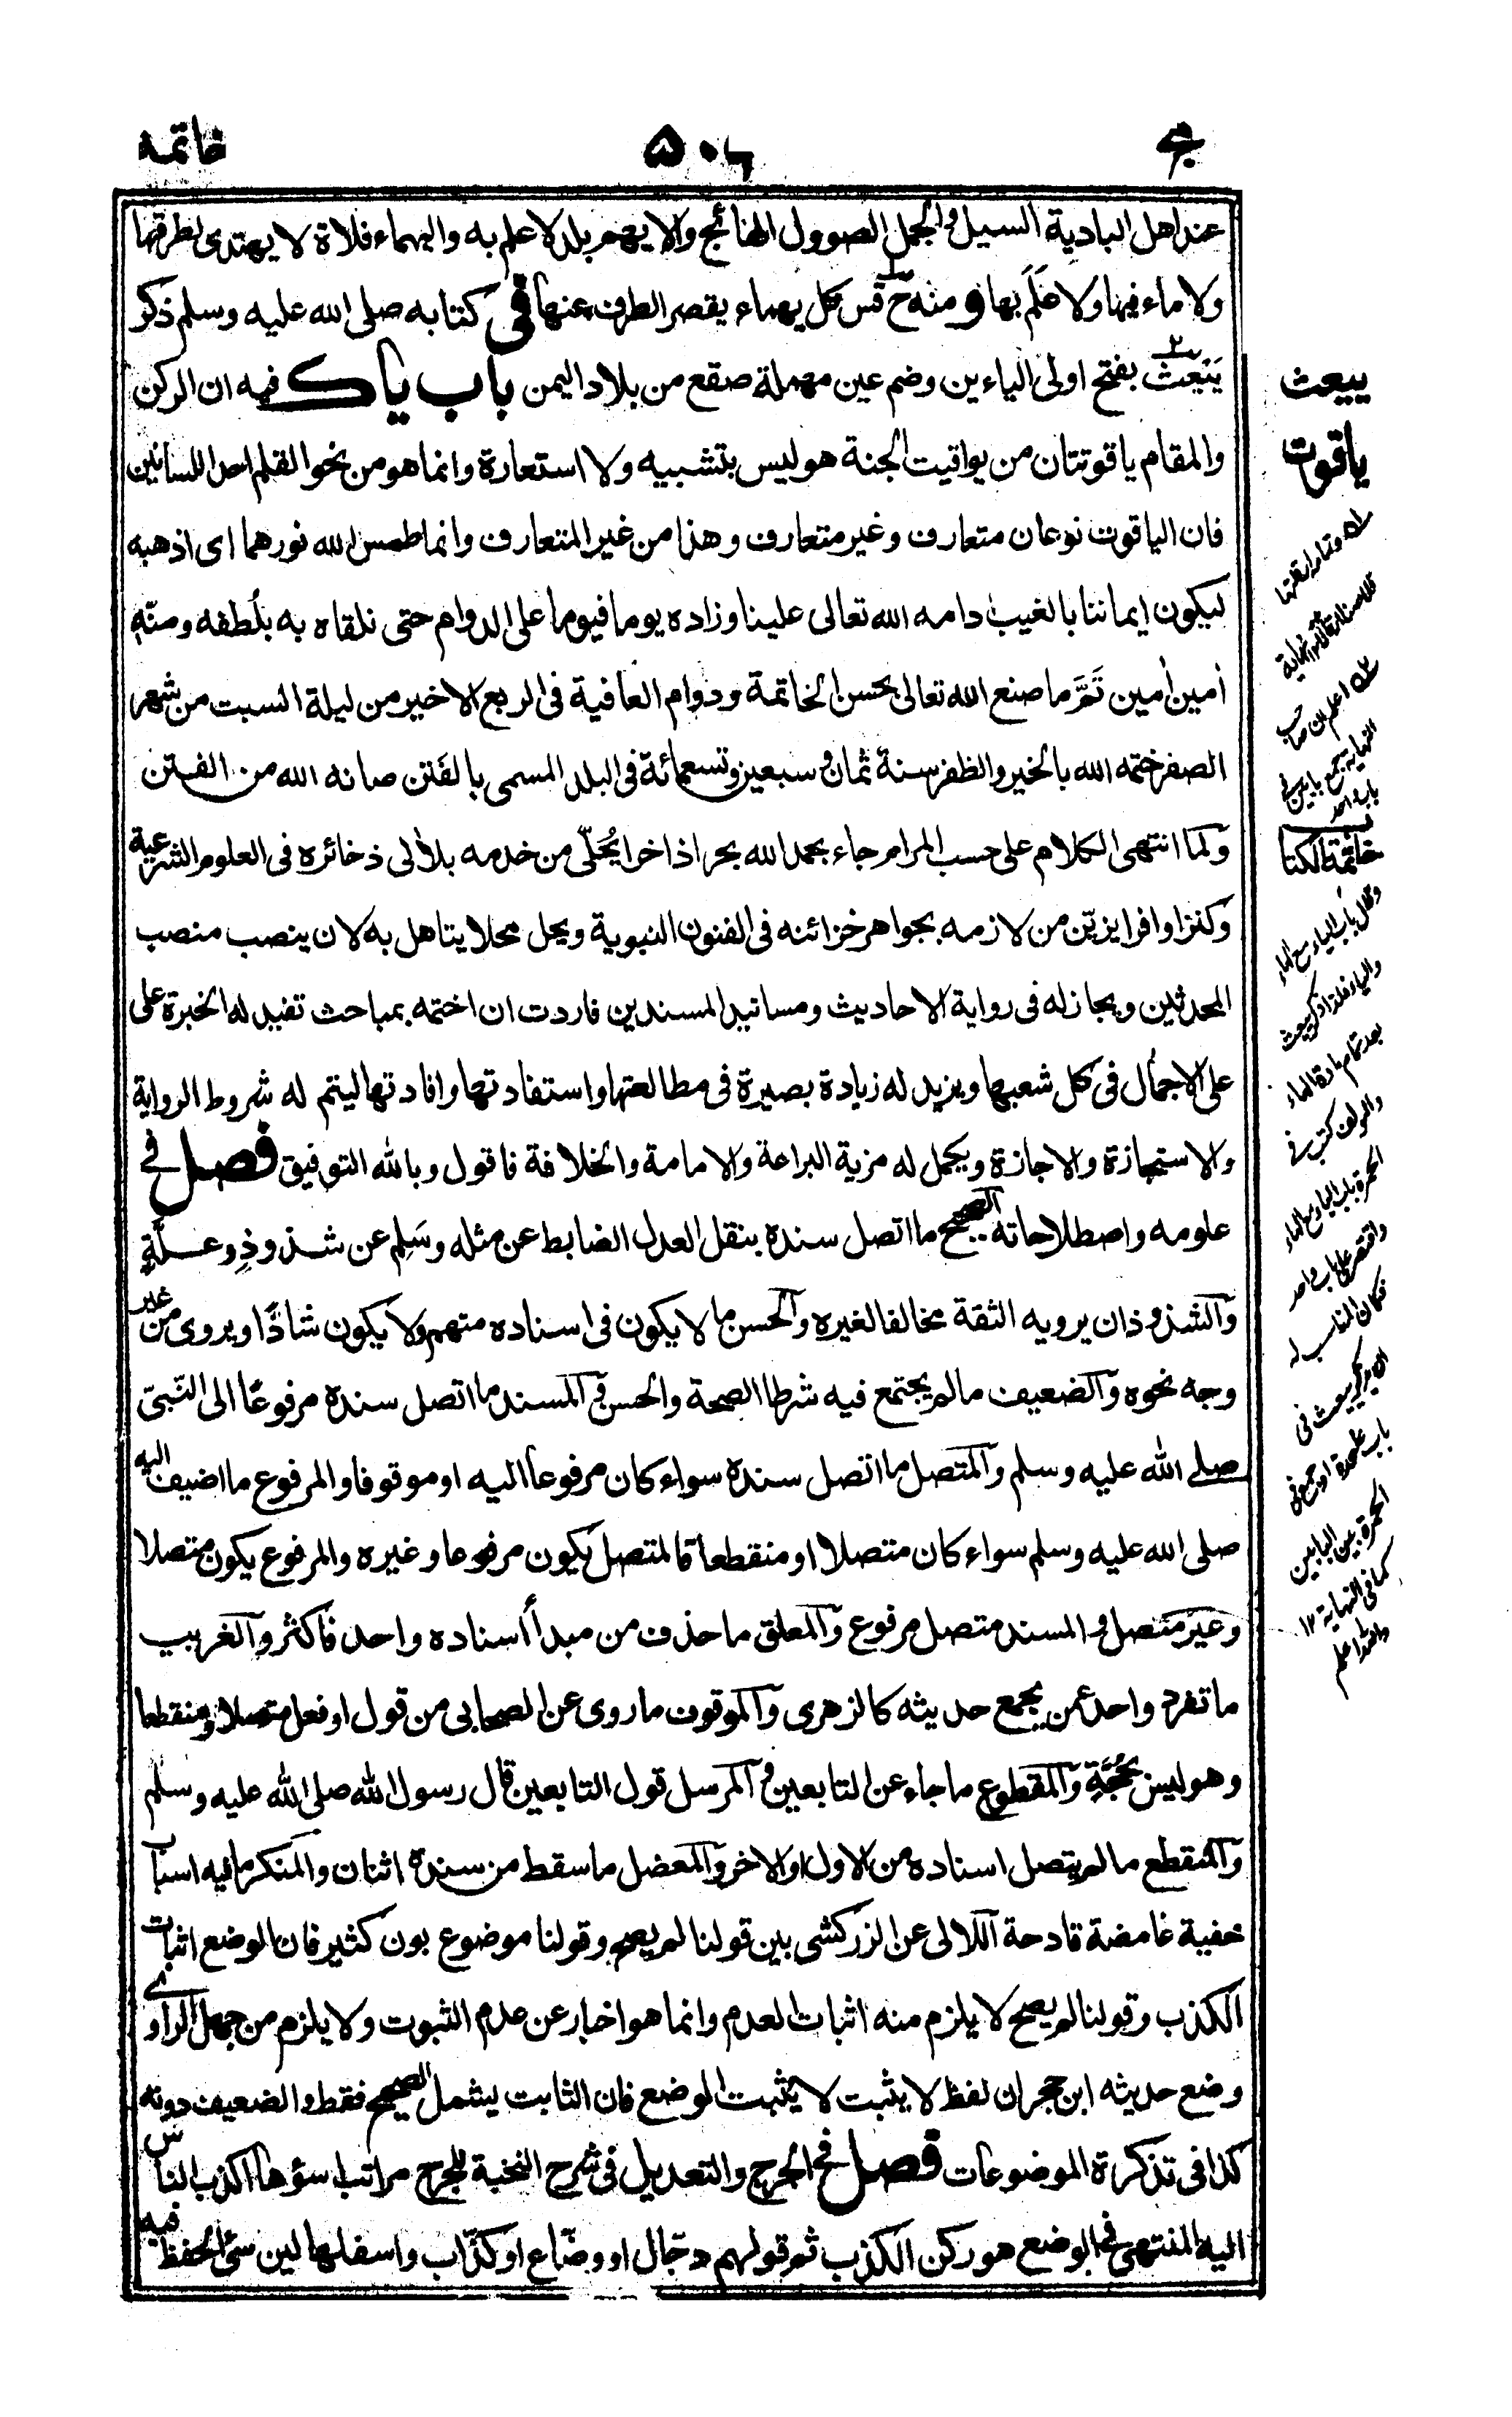 خاتمة
٥٠٦
ج
عند اهل البادية السيل والجمل الصوول الهائج والايهم بلد لا علم به واليهماء فلاة لا يهتدى لطرقها
ولا ماء فيها ولا عَلَم بها و منه ح قس كل يهماء يقصر الطرف عنها فى كتابه صلى الله عليه وسلم ذكر
يَيْعُث بفتح اولى الياءين وضم عين مهملة صقع من بلاد اليمن باب ياك فيه ان الركن
والمقام ياقوتتان من يواقيت الجنة هو ليس بتشبيه ولا استعارة وانما هو من نحو القلم احد اللسانين
فان الياقوت نوعان متعارف وغير متعارف وهذا من غير المتعارف وانما طمس الله نورهما اى اذهبه
ليكون ايماننا بالغيب دامه الله تعالى علينا وزاده يوما فيوما على الدوام حتى نلقاه به بلُطفه ومنّه
أمين أمين تَمَّ ما صنع الله تعالى بحسن الخاتمة ودوام العافية فى الربع الاخير من ليلة السبت من شهر
الصفر ختمه الله بالخير والظفر سنة ثمان و سبعين وتسعمائة فى البلد المسمى بالفَتن صانه الله من الفتن
ولما انتهى الكلام على حسب المرام جاء بحمد الله بحرا ذاخرا يُحَلّى من خدمه بلألى ذخائره فى العلوم الشرعية
وكنزا وافرا يزيّن من لازمه بجواهر خزائنه فى الفنون النبوية ويحل محلا يتاهل به لان ينصب منصب
المحدثين ويجاز له فى رواية الاحاديث ومسانيد المسندين فاردت ان اختمه بمباحث تفيد له الخبرة على
على الاجمال فى كل شعبها ويزيد له زيادة بصيرة فى مطالعتها واستفادتها وافادتها ليتم له شروط الرواية
والاستجازة والاجازة ويكمل له مزية البراعة والامامة والخلافة فاقول وبالله التوفيق فصل فى
علومه واصطلاحاته الصحيح ما اتصل سنده بنقل العدل الضابط عن مثله وسَلِم عن شذوذٍ وعلّةٍ
والشذوذ ان يرويه الثقة مخالفا لغيره والحسن ما لا يكون فى اسناده متهم ولا يكون شاذًا ويروى من غير
وجه نحوه والضعيف ما لم يجتمع فيه شرطا الصحة والحسن و المسند ما اتصل سنده مرفوعًا الى النّبىّ
صلى الله عليه وسلم والمتصل ما اتصل سنده سواء كان مرفوعا اليه او موقوفا والمرفوع ما اضيف اليه
صلى الله عليه وسلم سواء كان متصلا او منقطعا فالمتصل يكون مرفوعا وغيره والمرفوع يكون متصلا
وغير متصل و المسند متصل مرفوع والمعلق ما حذف من مبدأ اسناده واحد فاكثر والغريب
ما تفرد واحد عمن يجمع حديثه كالزهرى والموقوف ما روى عن الصحابى من قول او فعل متصلا او منقطعا
وهو ليس بحُجَّةٍ والمقطوع ما جاء عن التابعين و المرسل قول التابعين قال رسول الله صلى الله عليه وسلم
والمنقطع ما لم يتصل اسناده من الاول او الاخر والمعضل ما سقط من سنده اثنان والمنكر ما فيه اسباب
خفية غامضة قادحة اللالى عن الزركشى بين قولنا لم يصح وقولنا موضوع بون كثير فان الوضع اثبات
الكذب وقولنا لم يصح لا يلزم منه اثبات العدم وانما هو اخبار عن عدم الثبوت ولا يلزم من جهل الراوى
وضع حديثه ابن حجر ان لفظ لا يثبت لا يثبت الوضع فان الثابت يشمل الصحيح فقط والضعيف دونه
كذا فى تذكرة الموضوعات فصل فى الجرح والتعديل فى شرح النخبة للجرح مراتب اسؤها اكذب الناس
اليه المنتهى فى الوضع هو ركن الكذب ثم قولهم دجّال او وضّاع او كذّاب واسفلها لين سئ الحفظ فيه
ييعث
ياقوت
اعلم ان صاحب
النهاية جمع بابين فى
باب واحد
خاتمة الكتاب
وقال باب الياء مع الهاء
والياء فلذا ذكر ييعث
بعد تمام مادة الهاء
والمؤلف كتب فى
الحمرة باب الياء مع الهاء
واقتصر على باب واحد
فكان المناسب له
ان يذكر ييعث فى
باب علحدة او يجمع فى
الحمرة بين البابين
كما فى النهاية ١٢
والله اعلم